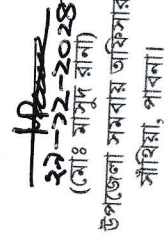 ২৯-১২-২০২৪
(মোঃ মাসুদ রানা)
উপজেলা সমবায় অফিসার
সাঁথিয়া, পাবনা।